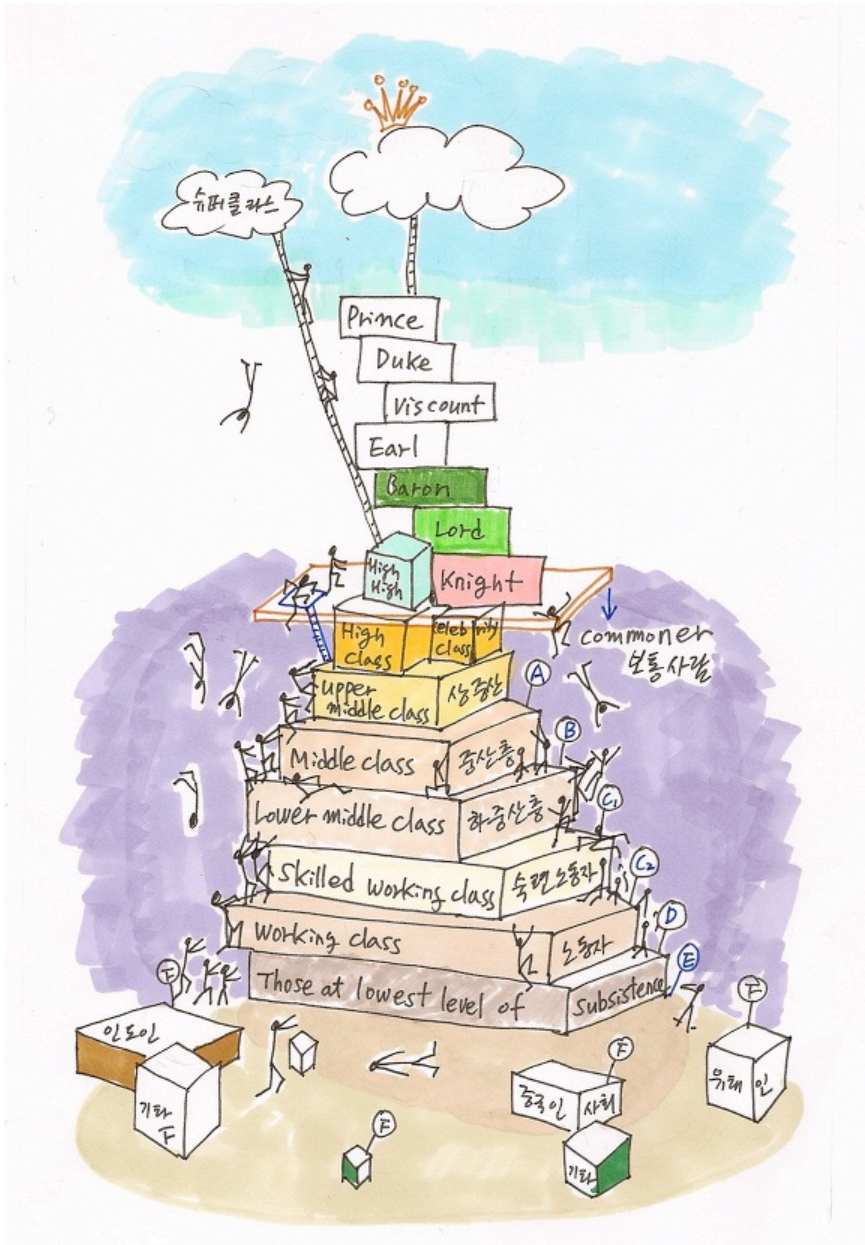 슈퍼클라스
Prince
Duke
Viscount
Earl
Baron
Lord
High
High
Knight
commoner
보통사람
High
class
celeb rity
class
upper
middle class
상중산
A
Middle class
중산층
B
Lower middle class
하중산층
C1
Skilled working class
숙련노동자
C2
Working class
노동자
D
Those at lowest level of
subsistence
E
F
인도인
기타
F
F
중국인 사회
F
기타
F
유태인